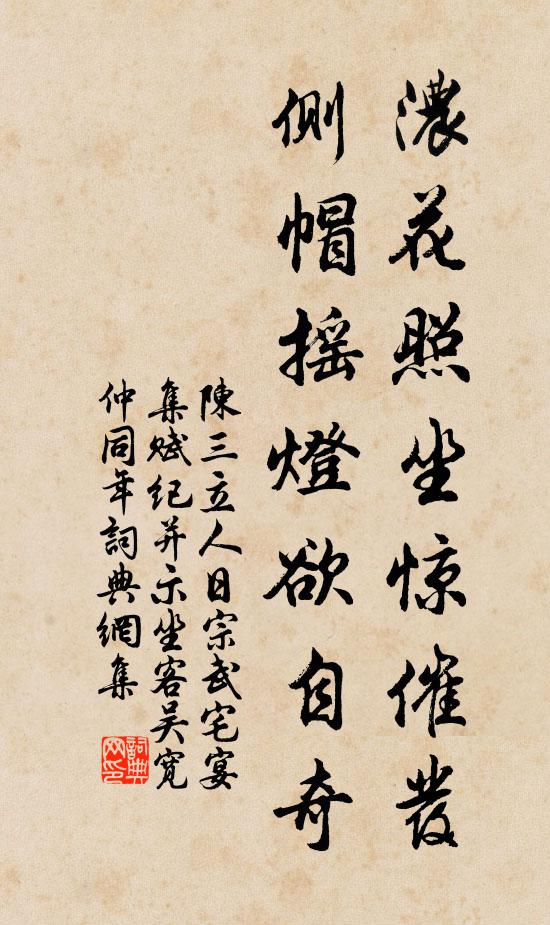 濃花照坐惊催发
側帽摇燈欲自奇
陳三立人日宗武宅宴
集赋纪并示坐客吴寬
仲同年詞典網集
詞典
网印